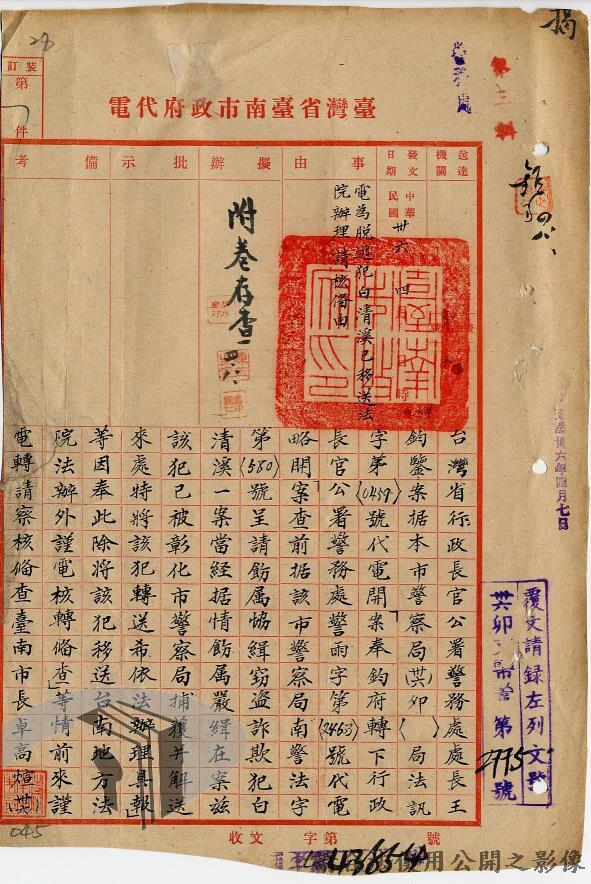 揭
28
第三科
裝訂
第
件
臺灣省臺南市政府代電
送達機關
發文日期
中華民國卅六
四
月
時
事由
電為脫逃犯白清溪已移送法院辦理請核備由
擬辦
附卷存查
四八
批示
備考
臺南市政府印
民國卅六年四月七日
覆文請錄左列文號
第2775號
台灣省行政長官公署警務處處長王
鈞鑒案据本市警察局(卅六)卯( )局法訊
字第(0459)號代電開「案奉鈞府轉下行政
長官公署警務處警雨字第(2463)號代電
略開案「查前据該市警察局南警法字
第(580)號呈請飭属協緝窃盗詐欺犯白
清溪一案當經据情飭属嚴緝在案茲
該犯已被彰化市警察局捕獲并解送
來處特將該犯轉送希依法辦理具報」
等因奉此除將該犯移送台南地方法
院法辦外謹電核轉俻查」等情前來謹
電轉請察核俻查臺南市長卓高煊
045
收文 字第 號
43854
使用公開之影像